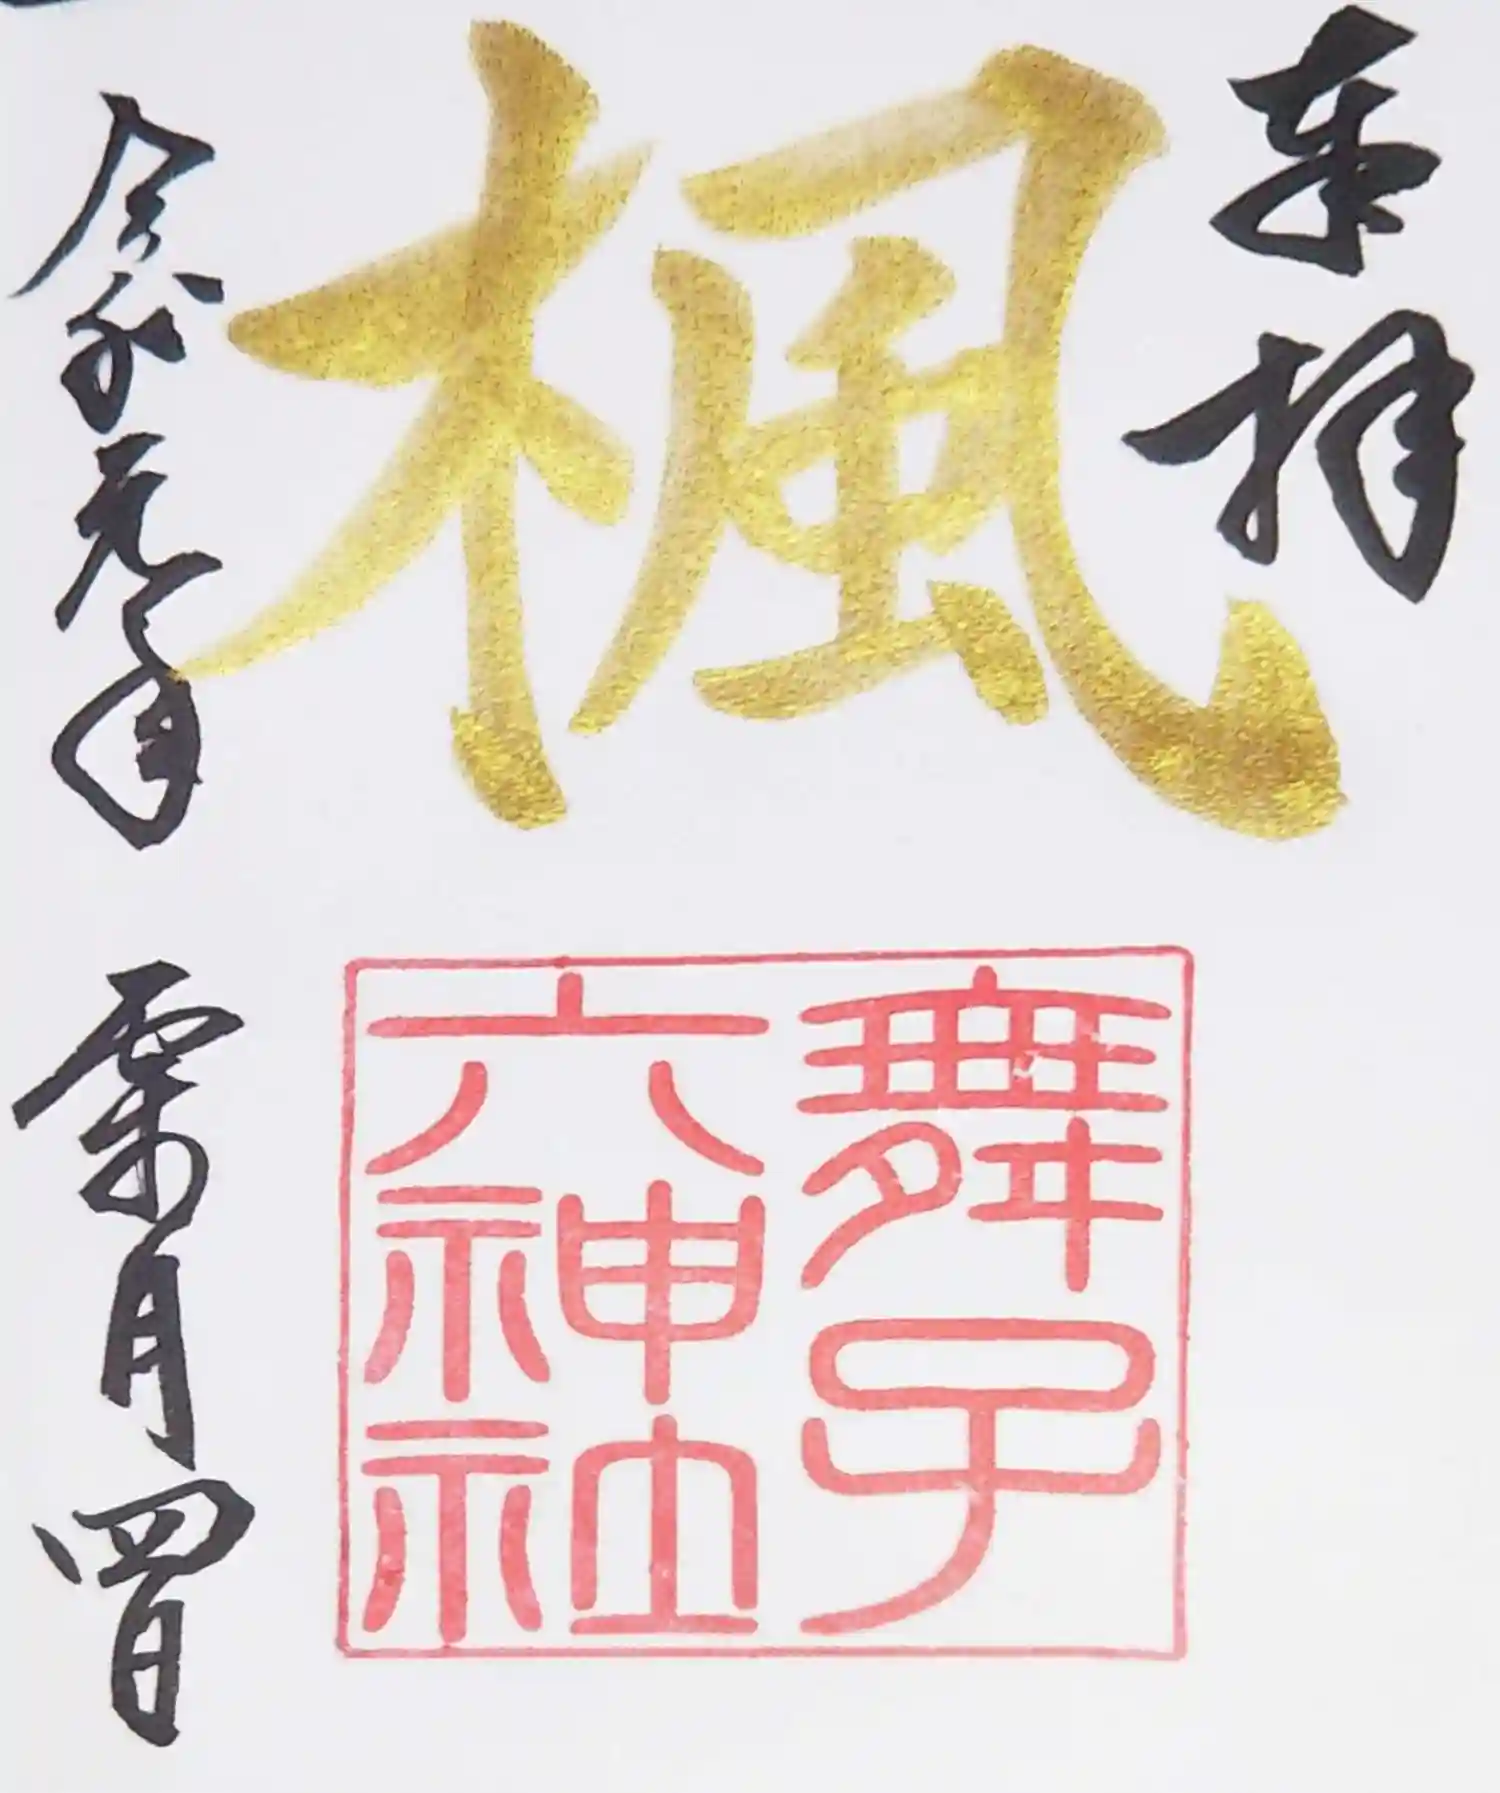 奉拝
楓
舞子
六神社
令和元年 霜月四日